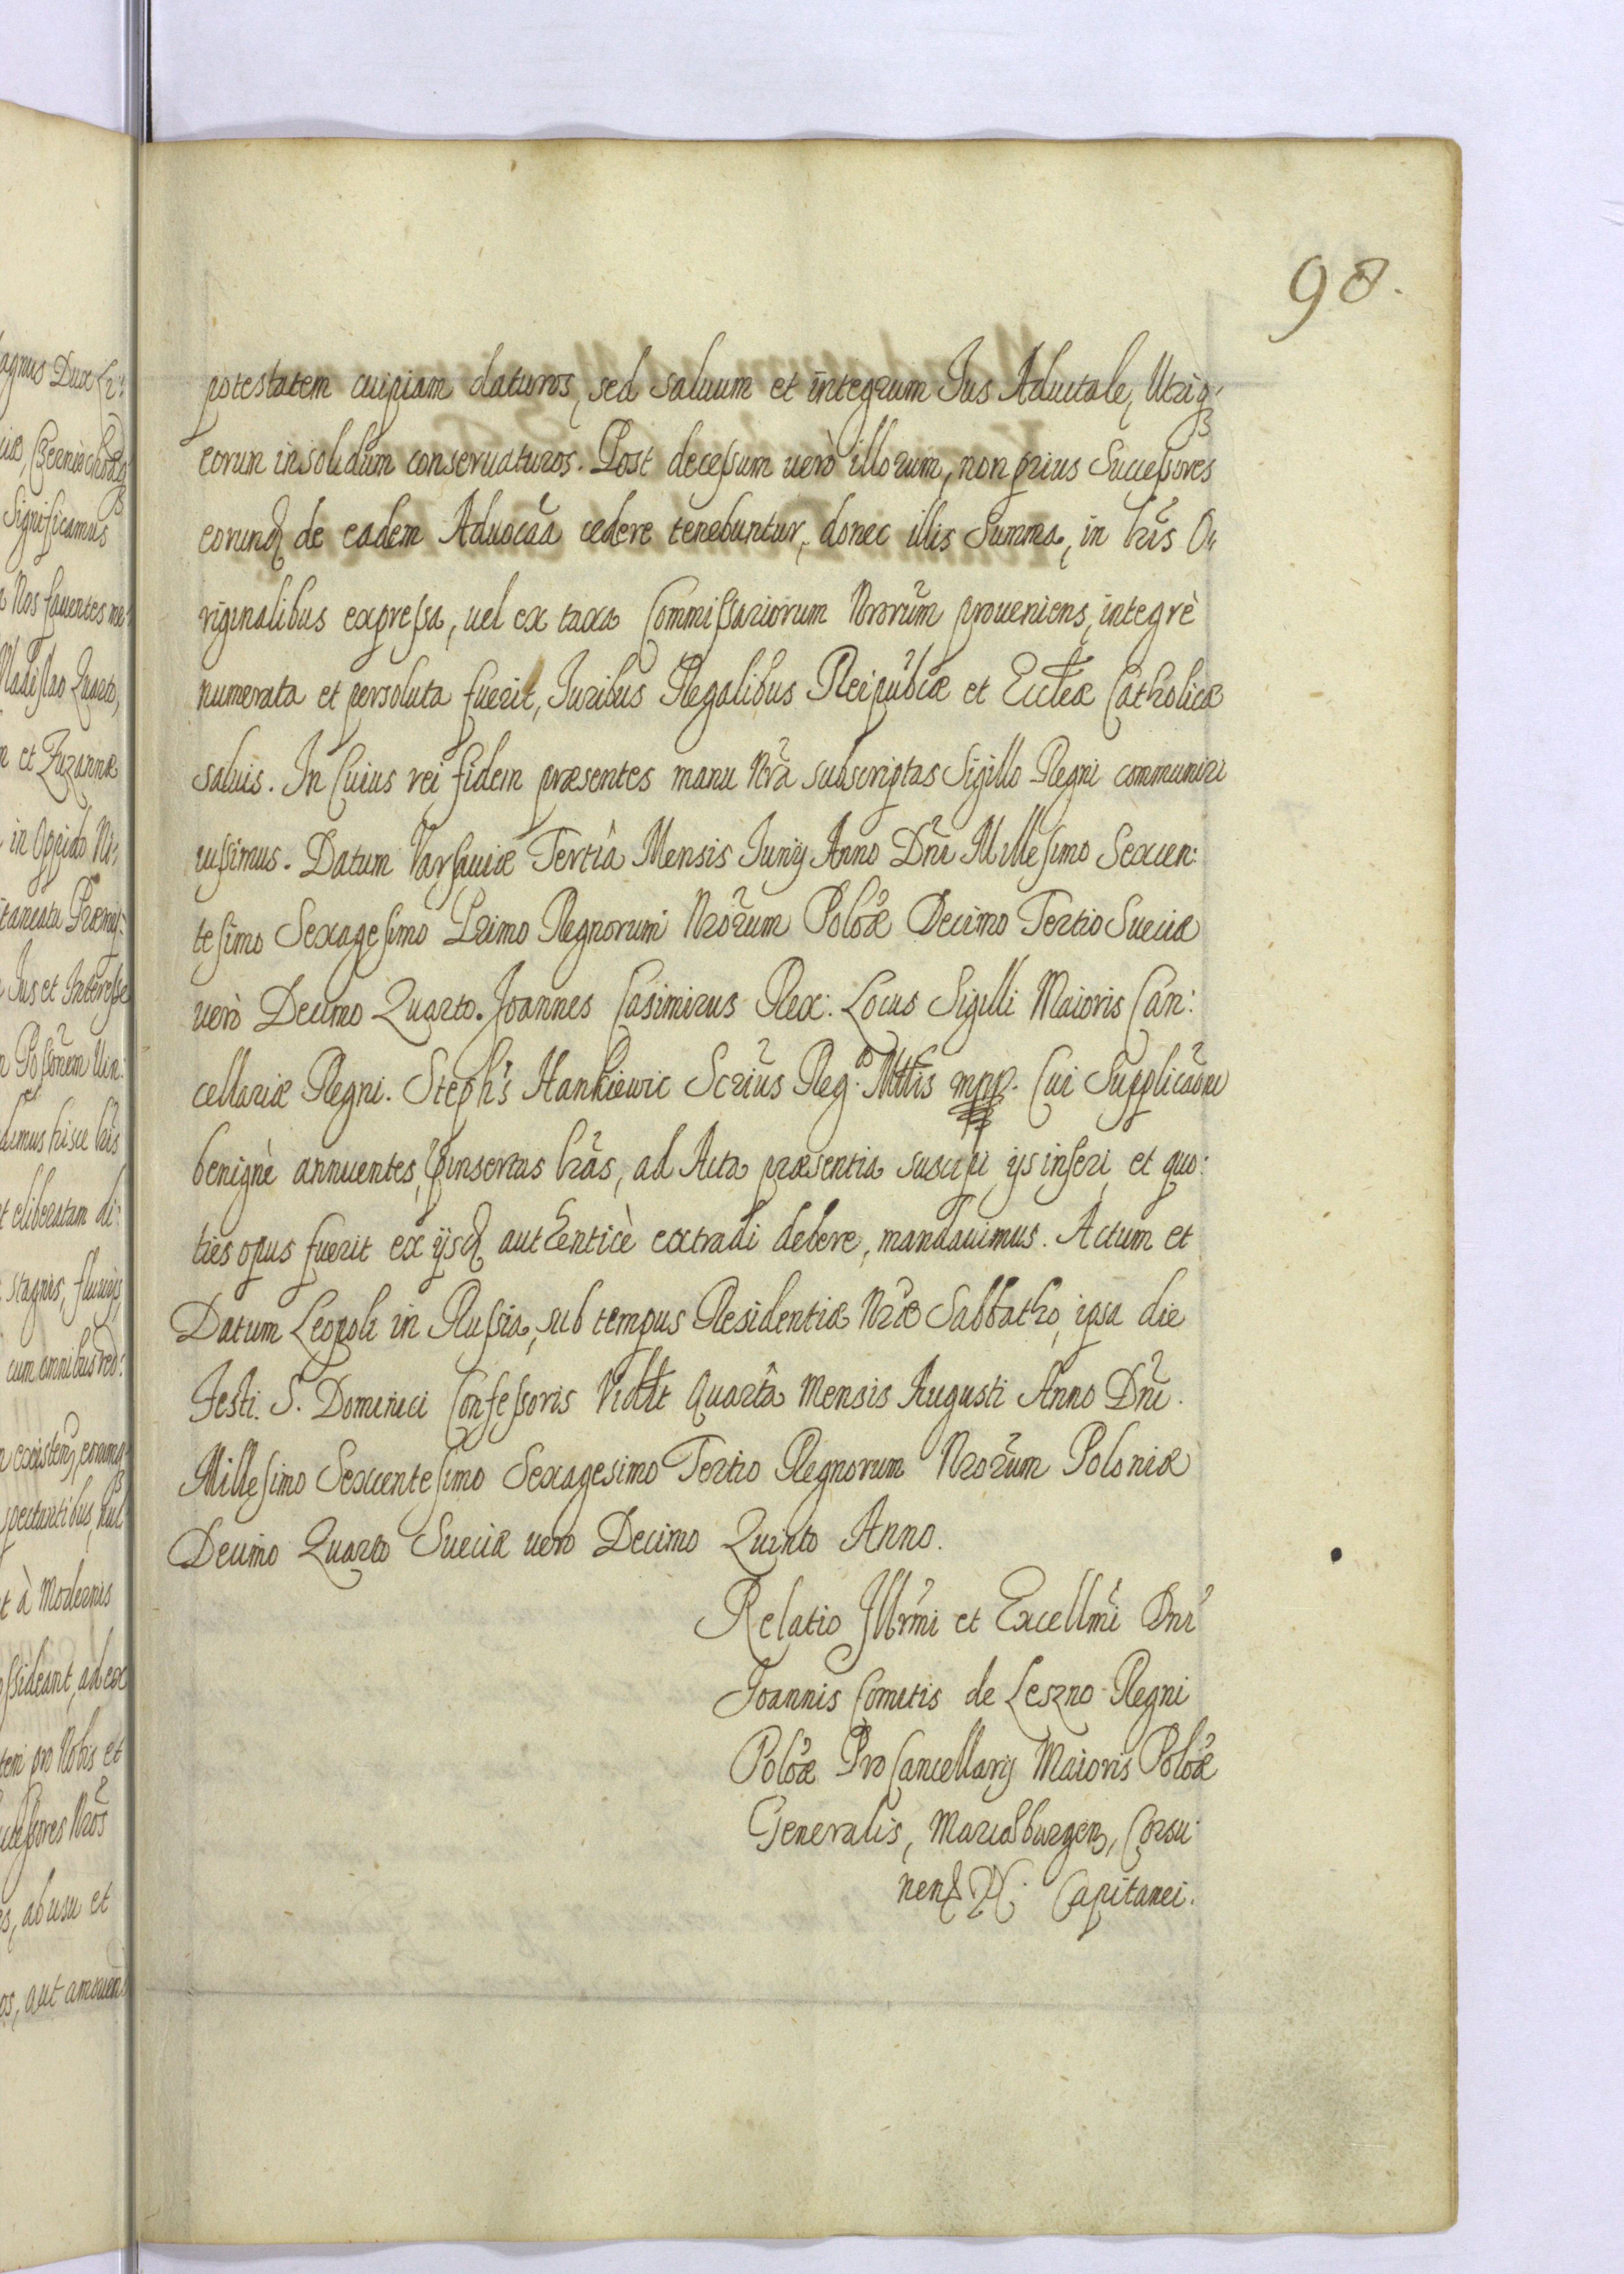 98.
potestatem cuipiam daturos, sed saluum et integrum Ius Aduitale, Utriq3
eorun insolidum conseruaturos. Post decessum uerò illorum, non prius Successores
eorund de eadem Aduocãa cedere tenebuntur, donec illis Summa, in lrĩs O:
riginalibus expressa, uel ex taxa Commissariorum Nrorũm proueniens, integrè
numerata et persoluta fuerit, Iuribus Regalibus Reipublcæ et Eccleæ Catholicæ
saluis. In Cuius rei fidem præsentes manu Nrã subscriptas Sigillo Regni communiri
iussimus. Datum Varsauiæ Tertià Mensis Iunij Anno Dñi Millesimo Sexcen:
tesimo Sexagesimo Primo Regnorum Nrorũm Polõæ Decimo Tertio Sueciæ
uerò Decimo Quarto. Joannes Casimirus Rex. Locus Sigilli Maioris Can:
cellariæ Regni. Steph's Hankiewic Scrius Reg. Mttis mpp. Cui Supplicãoni
benignè annuentes, pinsertas lrãs, ad Acta præsentia suscipi ijs inseri, et quo:
ties opus fuerit ex ijsd authenticè extradi debere, mandauimus. Actum et
Datum Leopoli in Russia, sub tempus Residentiæ Nræ Sabbatho, ipsa die
Festi. S. Dominici Confessoris Vidlt Quartâ Mensis Augusti Anno Dñi.
Millesimo Sexcentesimo Sexagesimo Tertio Regnorum Nrorũm Poloniæ
Decimo Quarto Sueciæ uero Decimo Quinto Anno.
Relatio Illrmi et Excellmi Dni
Joannis Comitis de Leszno Regni
Polõæ ProCancellarij Maioris Polõæ
Generalis, Marieburgen, Corsu:
nen Capitanei.